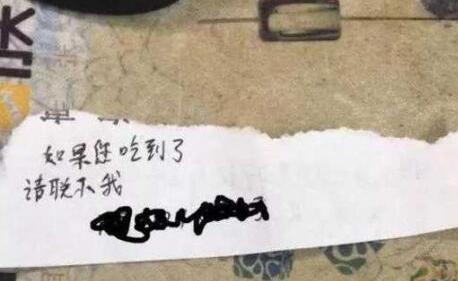 如果您吃到了
请联系我